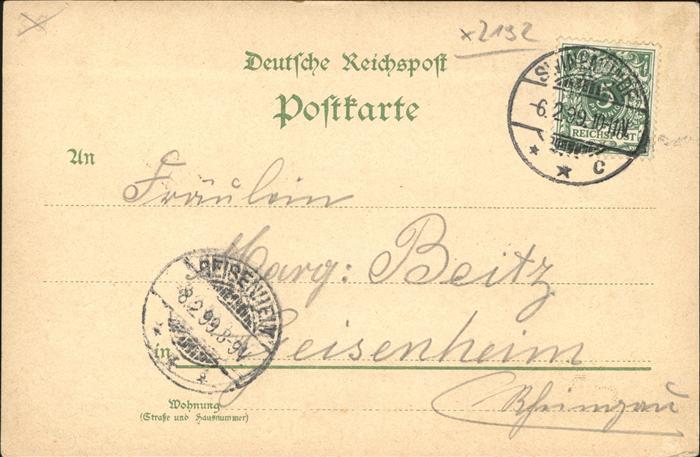 x2192
Deutsche Reichspost
Postkarte
SWINEMÜNDE
6.2.99.10-11N.
C
5
REICHSPOST
An
Fräulein
Marg: Beitz
GEISENHEIM
8.2.99.8-9V.
in Geisenheim
Rheingau
Wohnung
(Straße und Hausnummer)